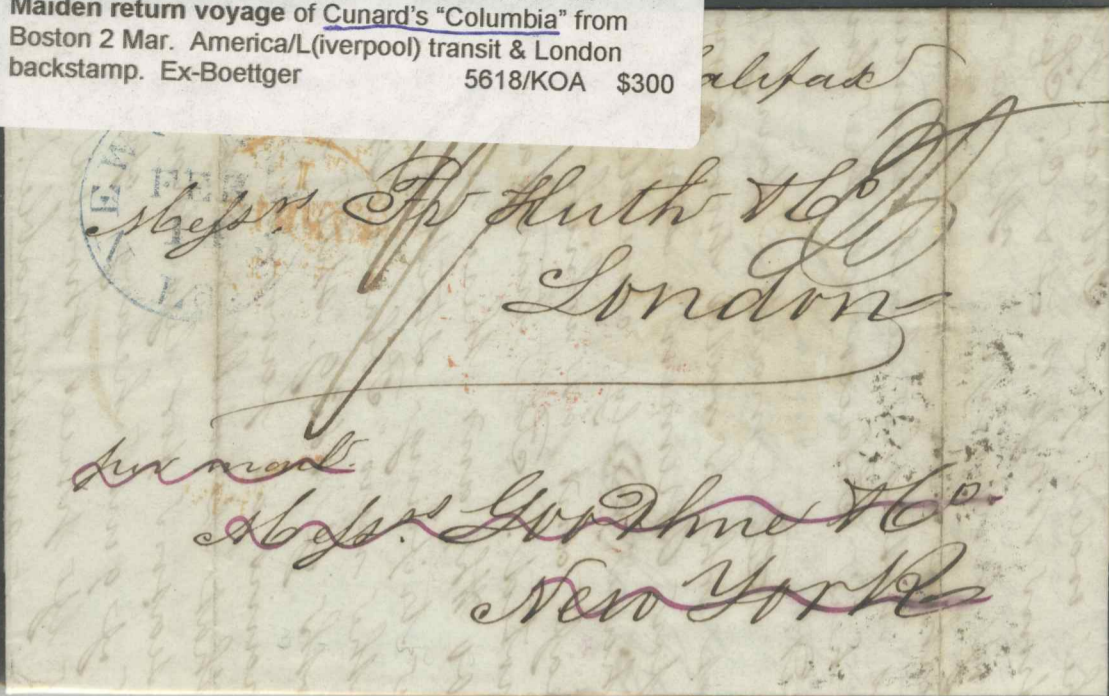 Maiden return voyage of Cunard's "Columbia" from
Boston 2 Mar. America/L(iverpool) transit & London
backstamp. Ex-Boettger 5618/KOA $300
alifax
NEW
FEB
LO
Messrs. Fr Huth & Co
London
per mail
Messrs. & Co
New York